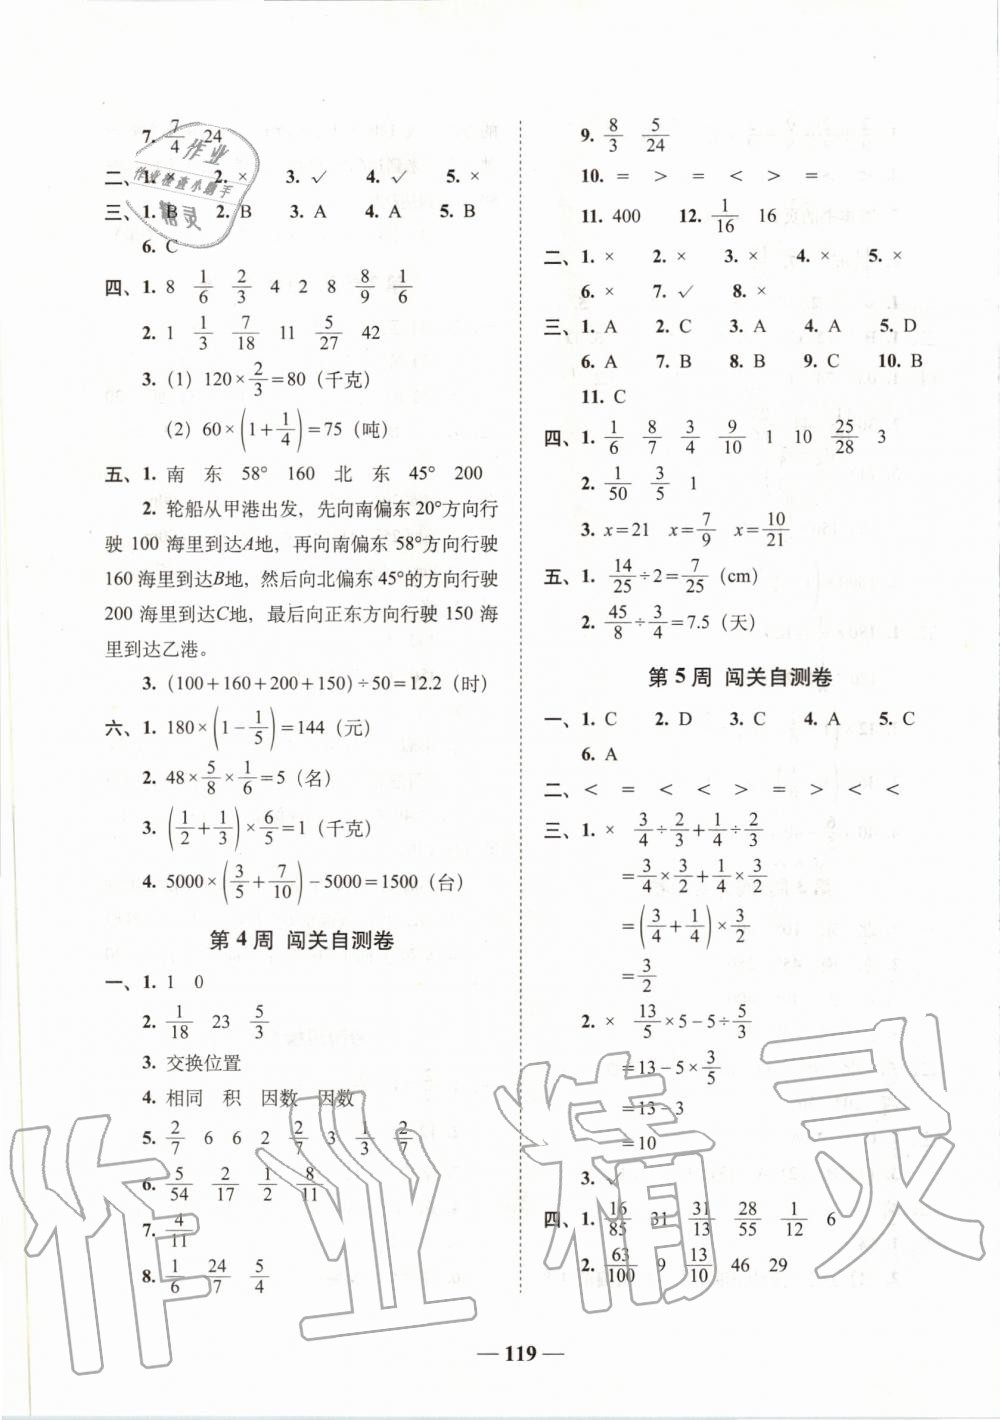 7. 7/4 24
二、1. × 2. × 3. ✓ 4. ✓ 5. ×
三、1. B 2. B 3. A 4. A 5. B
6. C
四、1. 8 1/6 2/3 4 2 8 8/9 1/6
2. 1 1/3 7/18 11 5/27 42
3. (1) 120×2/3=80(千克)
(2) 60×(1+1/4)=75(吨)
五、1. 南 东 58° 160 北 东 45° 200
2. 轮船从甲港出发，先向南偏东20°方向行
驶100海里到达A地，再向南偏东58°方向行驶
160海里到达B地，然后向北偏东45°的方向行驶
200海里到达C地，最后向正东方向行驶150海
里到达乙港。
3. (100+160+200+150)÷50=12.2(时)
六、1. 180×(1-1/5)=144(元)
2. 48×5/8×1/6=5(名)
3. (1/2+1/3)×6/5=1(千克)
4. 5000×(3/5+7/10)-5000=1500(台)
第4周 闯关自测卷
一、1. 1 0
2. 1/18 23 5/3
3. 交换位置
4. 相同 积 因数 因数
5. 2/7 6 6 2 2/7 3 1/3 2/7
6. 5/54 2/17 1/2 8/11
7. 4/11
8. 1/6 24/7 5/4
9. 8/3 5/24
10. = > = < > =
11. 400 12. 1/16 16
二、1. × 2. × 3. × 4. × 5. ×
6. × 7. ✓ 8. ×
三、1. A 2. C 3. A 4. A 5. D
6. A 7. B 8. B 9. C 10. B
11. C
四、1. 1/6 8/7 3/4 9/10 1 10 25/28 3
2. 1/50 3/5 1
3. x=21 x=7/9 x=10/21
五、1. 14/25÷2=7/25(cm)
2. 45/8÷3/4=7.5(天)
第5周 闯关自测卷
一、1. C 2. D 3. C 4. A 5. C
6. A
二、< = < < > = > < <
三、1. × 3/4÷2/3+1/4÷2/3
=3/4×3/2+1/4×3/2
=(3/4+1/4)×3/2
=3/2
2. × 13/5×5-5÷5/3
=13-5×3/5
=13-3
=10
3. ✓
四、1. 16/85 31 31/13 28/55 1/12 6
2. 63/100 9 13/10 46 29
— 119 —
作业
作业检查小帮手
精灵
作业精灵